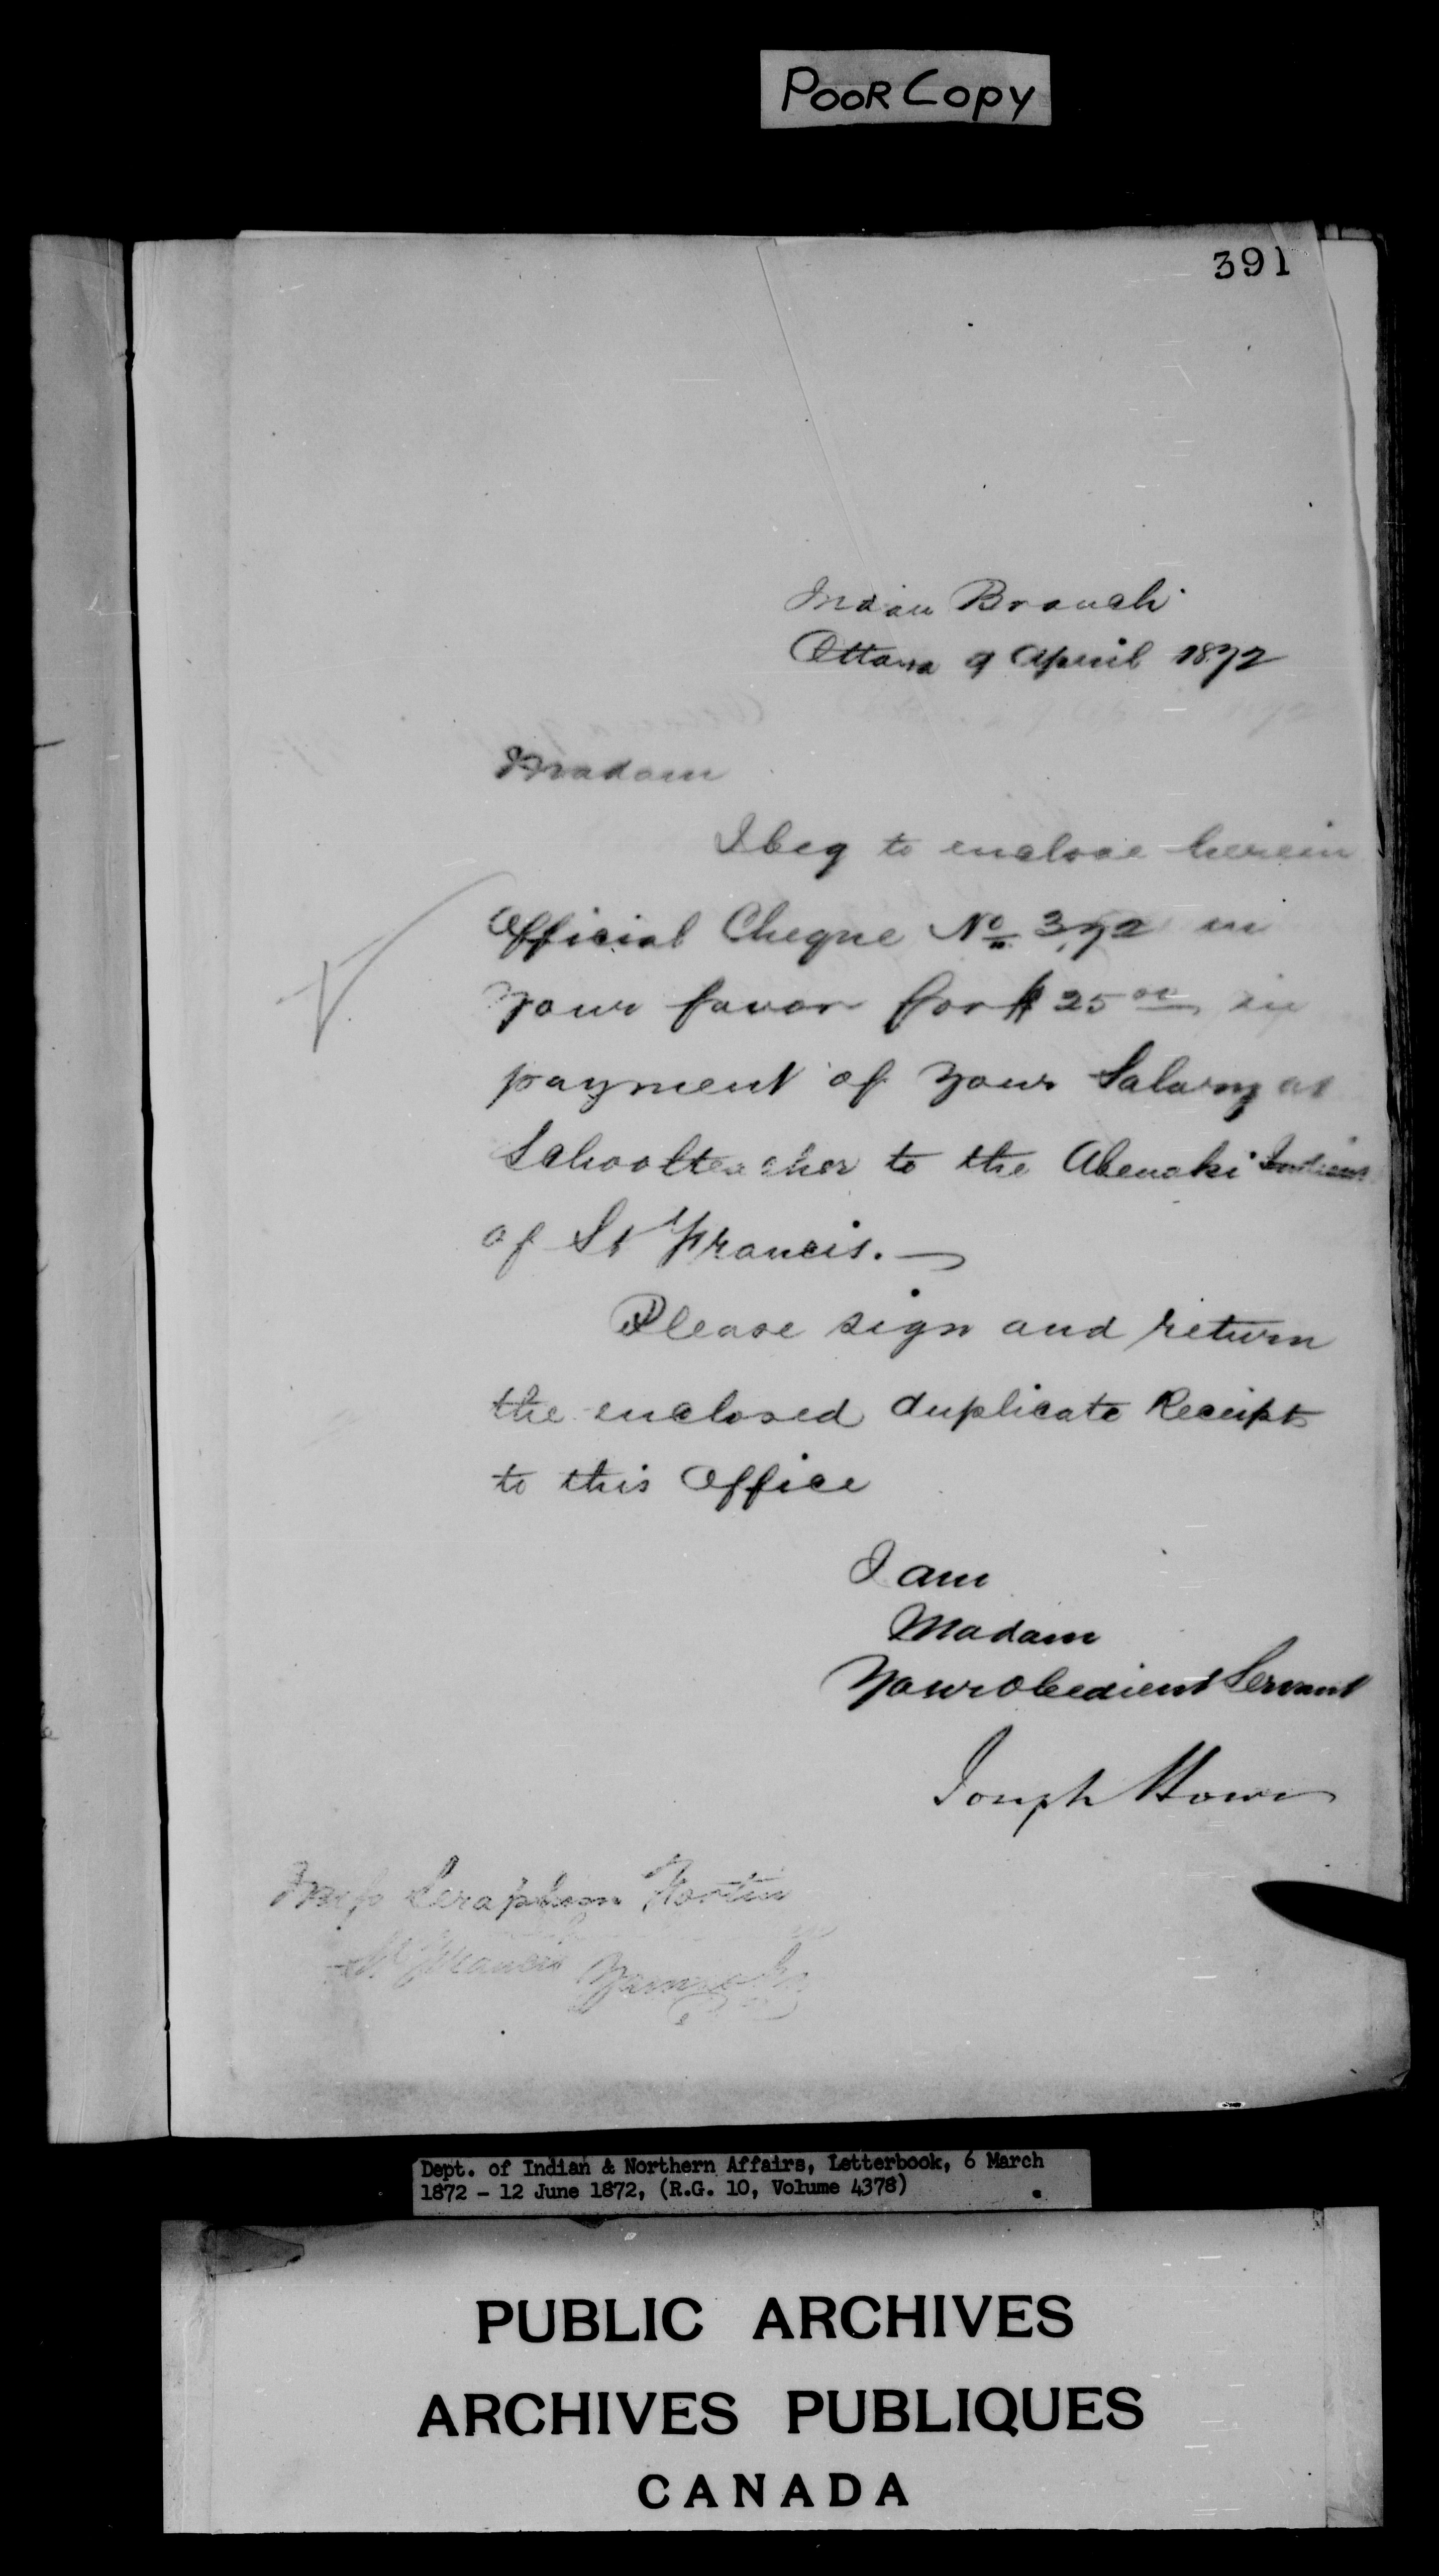 POOR COPY
391
Indian Branch
Ottawa 9 April 1872
Madam
I beg to enclose herein
Official Cheque No 372 in
your favor for $25 00 in
payment of your Salary as
Schoolteacher to the Abenaki Indians
of St Francis. —
Please sign and return
the enclosed duplicate Receipts
to this Office
I am
Madam
Your Obedient Servant
Joseph Howe
Miss
St Francis
Dept. of Indian & Northern Affairs, Letterbook, 6 March
1872 - 12 June 1872, (R.G. 10, Volume 4378)
PUBLIC ARCHIVES
ARCHIVES PUBLIQUES
CANADA